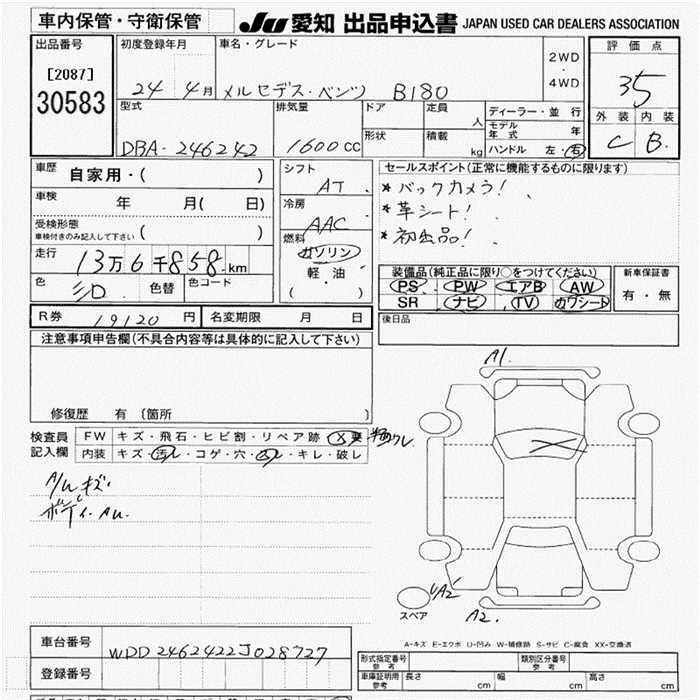 車内保管・守衛保管 JU 愛知 出品申込書 JAPAN USED CAR DEALERS ASSOCIATION
出品番号 初度登録年月 車名・グレード 2WD・4WD 評価点
[2087] 24 4月 メルセデス・ベンツ B180 35
30583 型式 排気量 ドア 定員 人 ディーラー・並行 外装 内装
モデル年式 年
DBA-246242 1600cc 形状 積載 kg ハンドル 左・右 C B
車歴 自家用・( ) シフト AT セールスポイント(正常に機能するものに限ります)
車検 年 月( 日) 冷房 AAC * バックカメラ!
受検形態 * 革シート!
車検付きのみ記入して下さい ( ) 燃料 * 初出品!
走行 13万6千858km ガソリン 装備品(純正品に限り○をつけてください) 新車保証書
色 色替 色コード 軽・油 PS PW エアB AW 有・無
( ) SR ナビ TV カワシート
R券 19120円 名変期限 月 日 後日品
注意事項申告欄(不具合内容等は具体的に記入して下さい)
修復歴 有〔箇所 〕
検査員 FW キズ・飛石・ヒビ割・リペア跡・X要
記入欄 内装 キズ・汚レ・コゲ・穴・スレ・キレ・破レ
A/W キズ・
A1
A2
スペア A2
A-キズ E-エクボ U-凹み W-補修跡 S-サビ C-腐食 XX-交換済
車台番号 WDD2462422J028727
登録番号
形式指定番号 参考 類別区分番号 参考
車庫証明用 参考 長さ cm 幅 cm 高さ cm